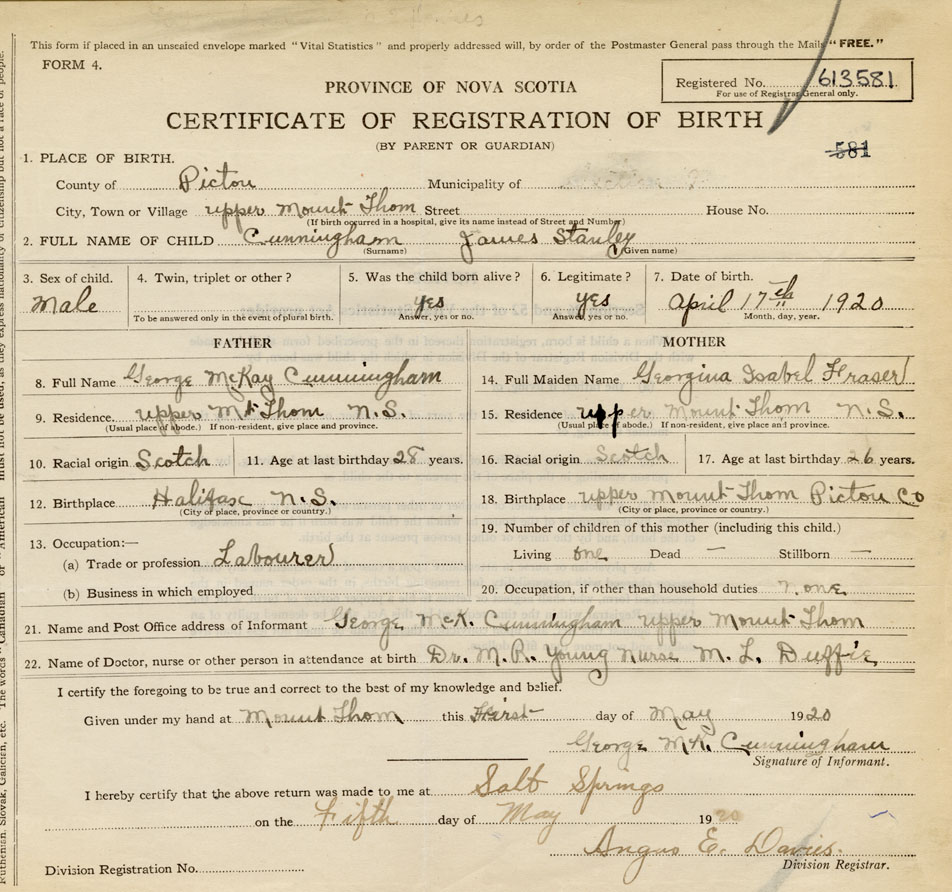 This form if placed in an unsealed envelope marked "Vital Statistics" and properly addressed will, by order of the Postmaster General pass through the Mails "FREE."
FORM 4.
Registered No. 613581
For use of Registrar General only.
PROVINCE OF NOVA SCOTIA
CERTIFICATE OF REGISTRATION OF BIRTH
(BY PARENT OR GUARDIAN)
581
1. PLACE OF BIRTH.
County of Pictou Municipality of
City, Town or Village upper Mount Thom Street House No.
(If birth occurred in a hospital, give its name instead of Street and Number)
2. FULL NAME OF CHILD Cunningham James Stanley
(Surname) (Given name)
3. Sex of child. 4. Twin, triplet or other? 5. Was the child born alive? 6. Legitimate? 7. Date of birth.
Male yes yes April 17th 1920
To be answered only in the event of plural birth. Answer, yes or no. Answer, yes or no. Month, day, year.
FATHER MOTHER
8. Full Name George McKay Cunningham 14. Full Maiden Name Georgina Isabel Fraser
9. Residence. upper Mt Thom N.S. 15. Residence upper Mount Thom N.S.
(Usual place of abode.) If non-resident, give place and province. (Usual place of abode.) If non-resident, give place and province.
10. Racial origin Scotch 11. Age at last birthday 28 years. 16. Racial origin Scotch 17. Age at last birthday 26 years.
12. Birthplace Halifax N.S. 18. Birthplace upper Mount Thom Pictou Co
(City or place, province or country.) (City or place, province or country.)
13. Occupation:— 19. Number of children of this mother (including this child.)
(a) Trade or profession Labourer Living one Dead — Stillborn —
(b) Business in which employed 20. Occupation, if other than household duties none
21. Name and Post Office address of Informant George McK. Cunningham upper Mount Thom
22. Name of Doctor, nurse or other person in attendance at birth Dr. M. R. Young Nurse M. L. Duffie
I certify the foregoing to be true and correct to the best of my knowledge and belief.
Given under my hand at Mount Thom this First day of May 1920
George McK. Cunningham
Signature of Informant.
I hereby certify that the above return was made to me at Salt Springs
on the Fifth day of May 1920
Angus E. Davies.
Division Registration No. Division Registrar.